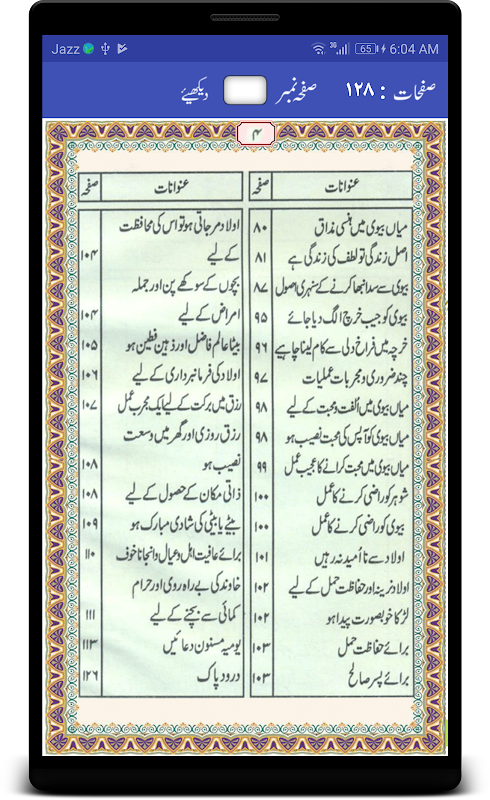 Jazz 3G 65 6:04 AM
صفحات : ۱۲۸ صفحہ نمبر دیکھیئے
۴
عنوانات صفحہ
میاں بیوی میں ہنسی مذاق ۸۰
اصل زندگی تو لطف کی زندگی ہے ۸۱
بیوی سے سدا نبھا کرنے کے سنہری اصول ۸۷
بیوی کو جیب خرچ الگ دیا جائے ۹۵
خرچہ میں فراخ دلی سے کام لینا چاہیے ۹۶
چند ضروری و مجربات عملیات ۹۷
میاں بیوی میں اُلفت و محبت کے لیے ۹۸
میاں بیوی کو آپس کی محبت نصیب ہو ۹۸
میاں بیوی میں محبت کرنے کا عجیب عمل ۹۹
شوہر کو راضی کرنے کا عمل ۱۰۰
بیوی کو راضی کرنے کا عمل ۱۰۰
اولاد سے نا اُمید نہ رہیں ۱۰۱
اولاد نرینہ اور حفاظت حمل کے لیے ۱۰۲
لڑکا خوبصورت پیدا ہو ۱۰۲
برائے حفاظت حمل ۱۰۳
برائے پسر صالح ۱۰۳
عنوانات صفحہ
اولاد مر جاتی ہو تو اس کی محافظت
کے لیے ۱۰۴
بچوں کے سوکھے پن اور جملہ
امراض کے لیے ۱۰۴
بیٹا عالم فاضل اور ذہین فطین ہو ۱۰۵
اولاد کی فرمانبرداری کے لیے ۱۰۶
رزق میں برکت کے لیے ایک مجرب عمل ۱۰۷
رزق روزی اور گھر میں وسعت
نصیب ہو ۱۰۸
ذاتی مکان کے حصول کے لیے ۱۰۸
بیٹے یا بیٹی کی شادی مبارک ہو ۱۰۹
برائے عافیت اہل و عیال و انجانا خوف ۱۱۰
خاوند کی بے راہ روی اور حرام
کمائی سے بچنے کے لیے ۱۱۱
یومیہ مسنون دعائیں ۱۱۳
درود پاک ۱۲۶